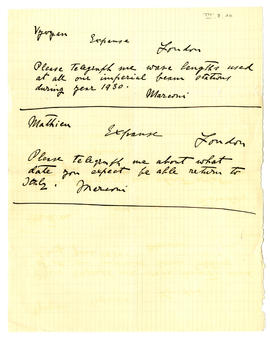 Vyvyan
Expanse
London
Please telegraph me wave lengths used
at all our imperial beam stations
during year 1930.
Marconi
Mathieu
Expanse
London
Please telegraph me about what
date you expect be able return to
Italy.
Marconi